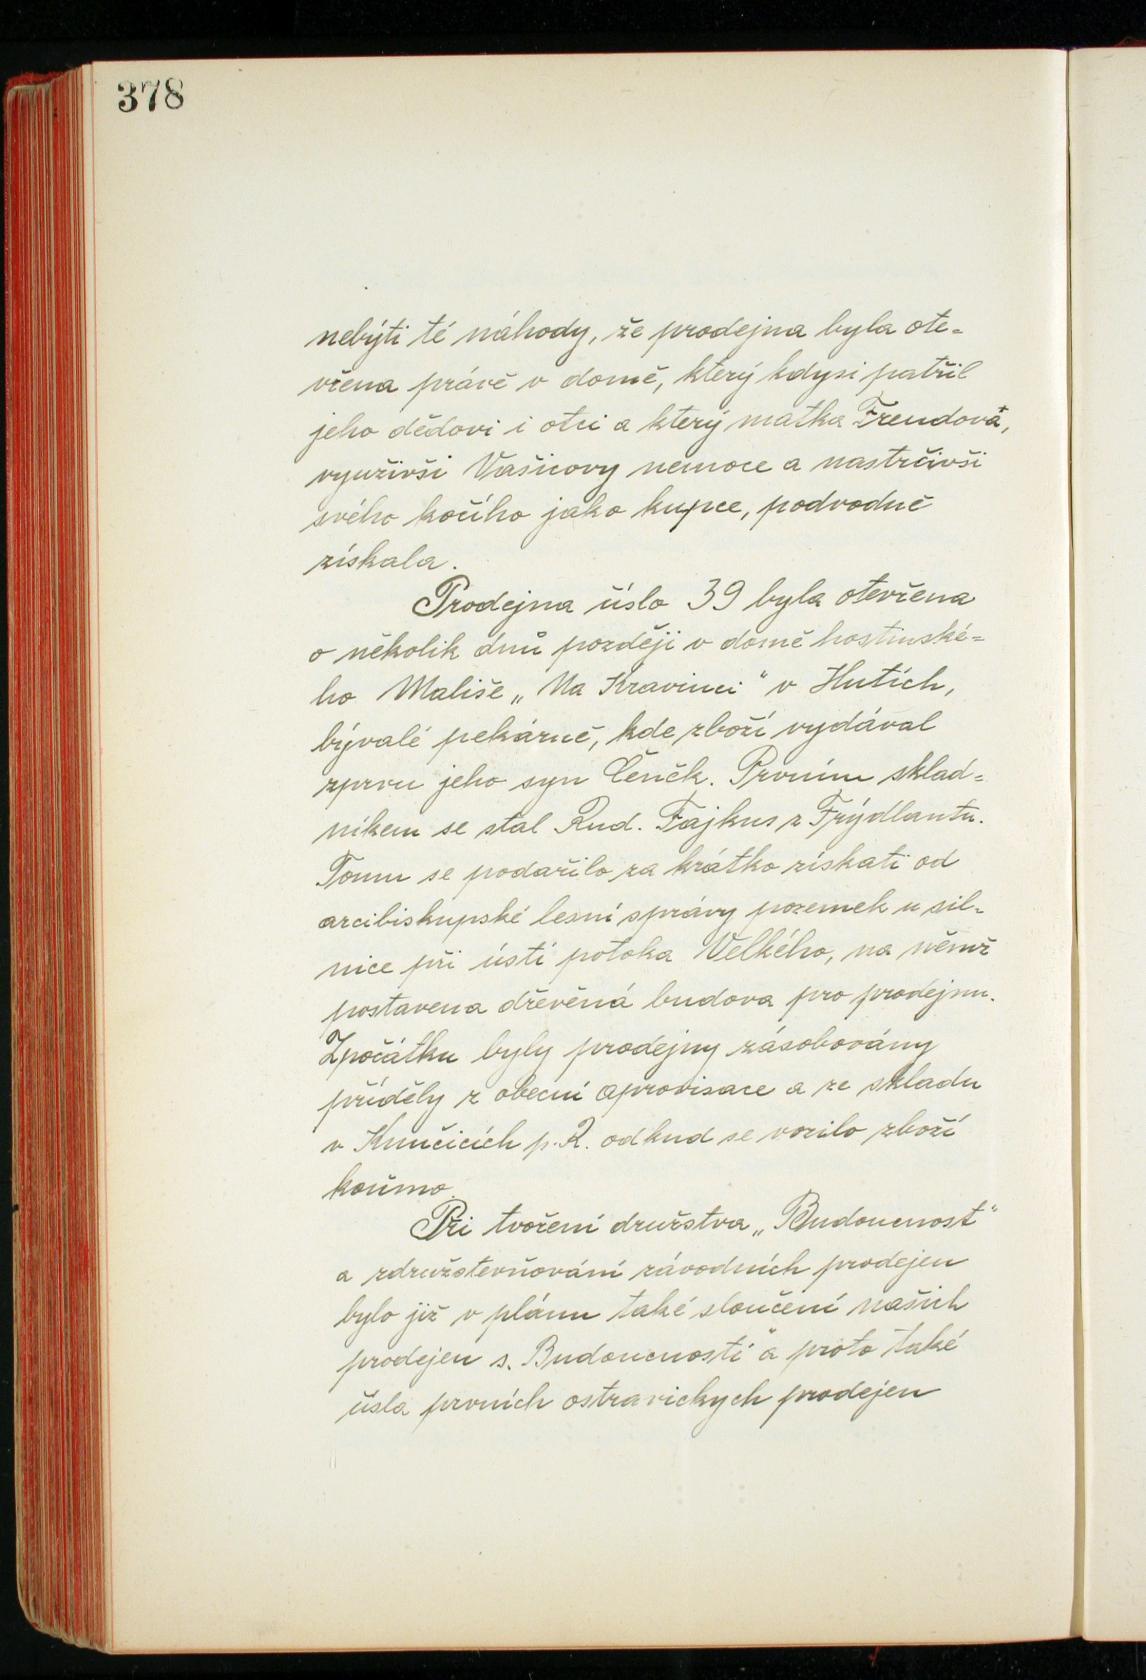 378
nebýti té náhody, že prodejna byla ote=
vřena právě v domě, který kdysi patřil
jeho dědovi i otci a který matka Frendová,
využivši Vašicovy nemoce a nastrčivši
svého kočího jako kupce, podvodně
získala.
Prodejna číslo 39 byla otevřena
o několik dnů později v domě hostinské=
ho Mališe „Na Kravinci“ v Hutích,
bývalé pekárně, kde zboží vydával
zprvu jeho syn Čeněk. Prvním sklad=
níkem se stal Rud. Fajkus z Frýdlantu.
Tomu se podařilo za krátko získati od
arcibiskupské lesní správy pozemek u sil=
nice při ústí potoka Velkého, na němž
postavena dřevěná budova pro prodejnu.
Zpočátku byly prodejny zásobovány
příděly z obecní aprovisace a ze skladu
v Kunčicích p. R. odkud se vozilo zboží
koňmo.
Při tvoření družstva „Budoucnost“
a združstevňování závodních prodejen
bylo již v plánu také sloučení našich
prodejen s „Budoucností“ a proto také
čísla prvních ostravických prodejen